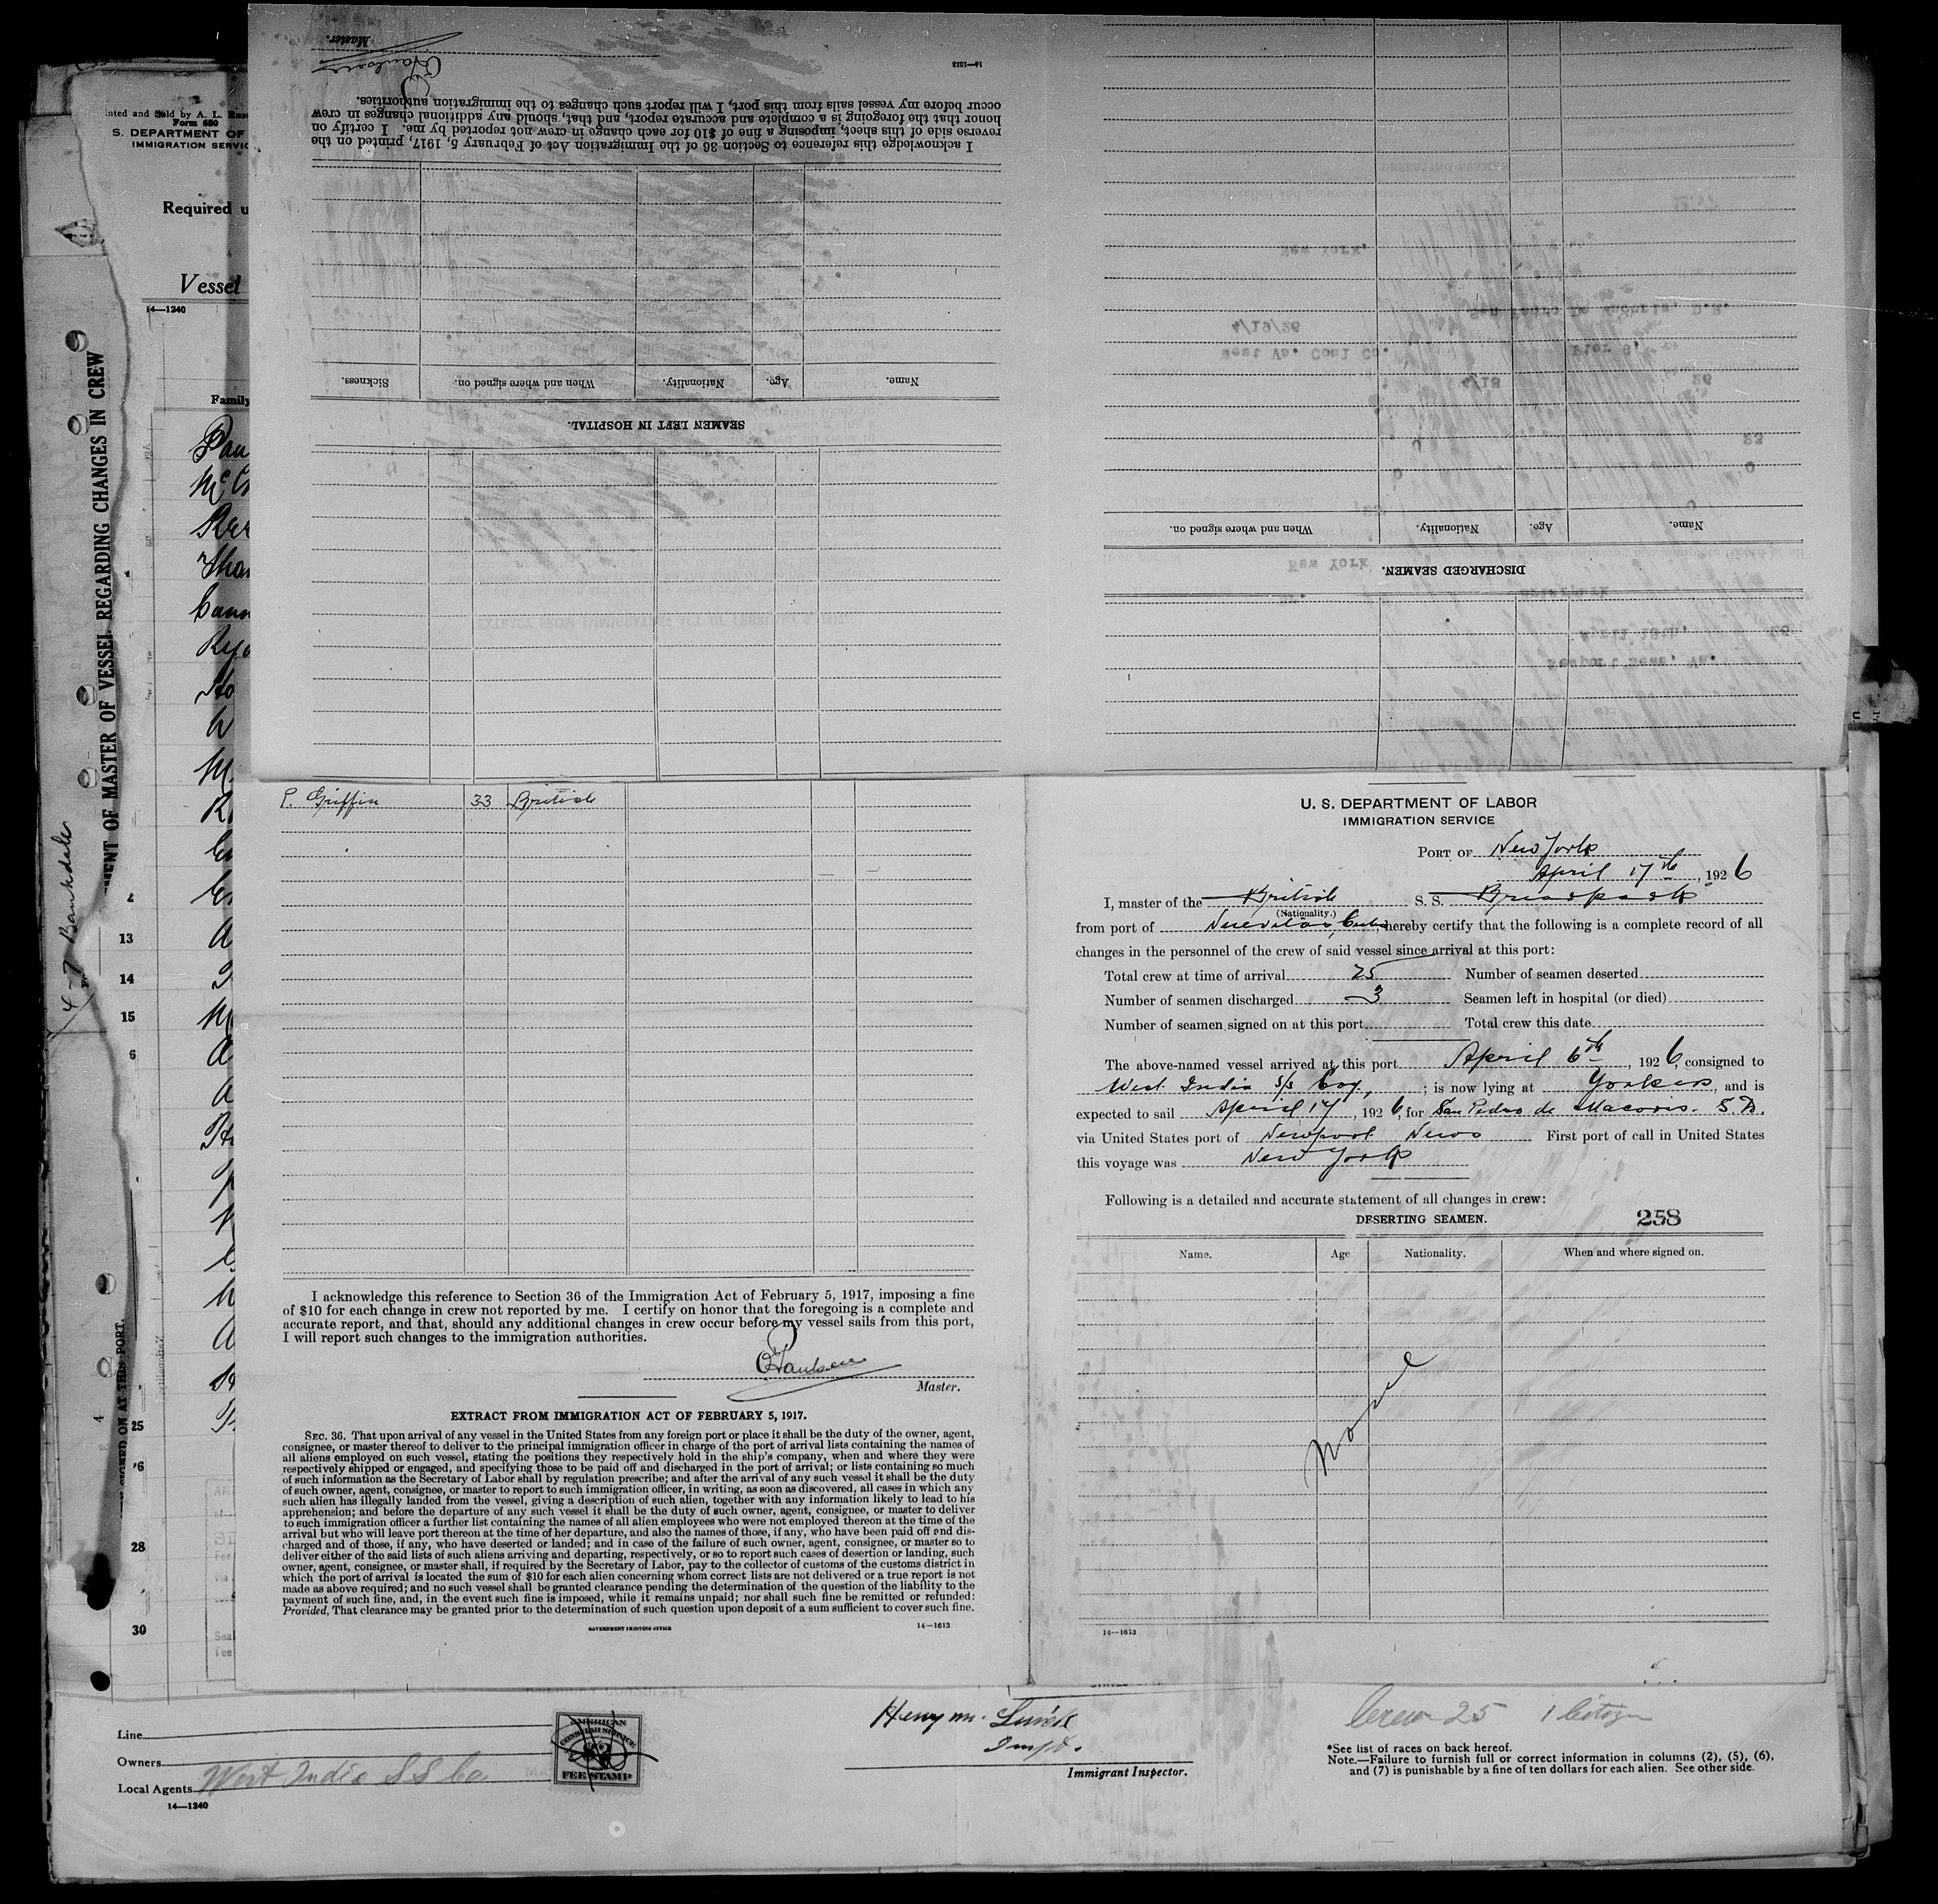 Master.
14—1613
I acknowledge this reference to Section 36 of the Immigration Act of February 5, 1917, printed on the
reverse side of this sheet, imposing a fine of $10 for each change in crew not reported by me. I certify on
honor that the foregoing is a complete and accurate report, and that, should any additional changes in crew
occur before my vessel sails from this port, I will report such changes to the immigration authorities.
SEAMEN LEFT IN HOSPITAL.
Name. Age. Nationality. When and where signed on. Sickness.
DISCHARGED SEAMEN.
Name. Age. Nationality. When and where signed on.
New York.
San Pedro De Macoris, D.R.
4/19/26
West Va. Coal Co.
Pier 9,
New York
April 19th,
Newport News, Va.
inted and Sold by A. L.
Form 680
S. DEPARTMENT OF
IMMIGRATION SERVIC
Required u
Vessel
14—1240
Family
MENT OF MASTER OF VESSEL REGARDING CHANGES IN CREW
SIGNED ON AT THIS PORT.
13
14
15
25
28
30
P. Griffin 33 British
I acknowledge this reference to Section 36 of the Immigration Act of February 5, 1917, imposing a fine
of $10 for each change in crew not reported by me. I certify on honor that the foregoing is a complete and
accurate report, and that, should any additional changes in crew occur before my vessel sails from this port,
I will report such changes to the immigration authorities.
Master.
EXTRACT FROM IMMIGRATION ACT OF FEBRUARY 5, 1917.
SEC. 36. That upon arrival of any vessel in the United States from any foreign port or place it shall be the duty of the owner, agent,
consignee, or master thereof to deliver to the principal immigration officer in charge of the port of arrival lists containing the names of
all aliens employed on such vessel, stating the positions they respectively hold in the ship's company, when and where they were
respectively shipped or engaged, and specifying those to be paid off and discharged in the port of arrival; or lists containing so much
of such information as the Secretary of Labor shall by regulation prescribe; and after the arrival of any such vessel it shall be the duty
of such owner, agent, consignee, or master to report to such immigration officer, in writing, as soon as discovered, all cases in which any
such alien has illegally landed from the vessel, giving a description of such alien, together with any information likely to lead to his
apprehension; and before the departure of any such vessel it shall be the duty of such owner, agent, consignee, or master to deliver
to such immigration officer a further list containing the names of all alien employees who were not employed thereon at the time of the
arrival but who will leave port thereon at the time of her departure, and also the names of those, if any, who have been paid off and dis-
charged and of those, if any, who have deserted or landed; and in case of the failure of such owner, agent, consignee, or master so to
deliver either of the said lists of such aliens arriving and departing, respectively, or so to report such cases of desertion or landing, such
owner, agent, consignee, or master shall, if required by the Secretary of Labor, pay to the collector of customs of the customs district in
which the port of arrival is located the sum of $10 for each alien concerning whom correct lists are not delivered or a true report is not
made as above required; and no such vessel shall be granted clearance pending the determination of the question of the liability to the
payment of such fine, and, in the event such fine is imposed, while it remains unpaid; nor shall such fine be remitted or refunded:
Provided, That clearance may be granted prior to the determination of such question upon deposit of a sum sufficient to cover such fine.
GOVERNMENT PRINTING OFFICE 14—1613
U. S. DEPARTMENT OF LABOR
IMMIGRATION SERVICE
PORT OF New York
April 17th, 1926
I, master of the British S. S.
(Nationality.)
from port of Nuevitas, Cuba hereby certify that the following is a complete record of all
changes in the personnel of the crew of said vessel since arrival at this port:
Total crew at time of arrival 25 Number of seamen deserted
Number of seamen discharged 3 Seamen left in hospital (or died)
Number of seamen signed on at this port Total crew this date
The above-named vessel arrived at this port April 6th, 1926, consigned to
West India S/S Coy.; is now lying at Yonkers, and is
expected to sail April 17, 1926, for San Pedro de Macoris. S.D.
via United States port of Newport News First port of call in United States
this voyage was New York
Following is a detailed and accurate statement of all changes in crew:
DESERTING SEAMEN. 258
Name. Age Nationality. When and where signed on.
None
14—1613
Line
Owners
Local Agents West India S S Co.
14—1240
AMERICAN
CONSULAR SERVICE
FEE STAMP
Henry M.
Insp.
Immigrant Inspector.
Crew 25 1 Citizen
*See list of races on back hereof.
Note.—Failure to furnish full or correct information in columns (2), (5), (6),
and (7) is punishable by a fine of ten dollars for each alien. See other side.